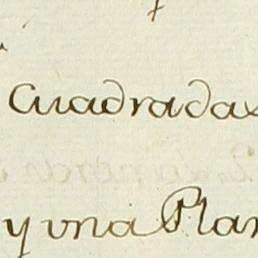 Cuadradas
y vna Plan